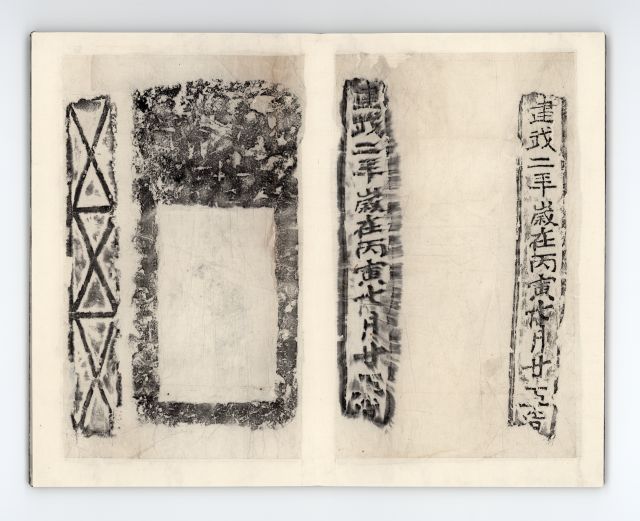 建武二年歲在丙寅七月廿五日造
建武二年歲在丙寅七月廿